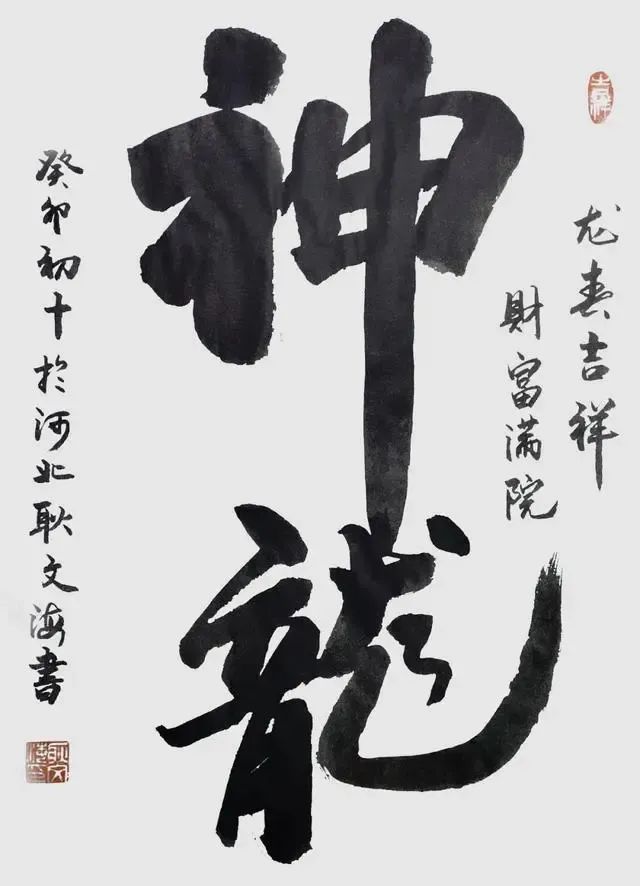 龙春吉祥
財富满院
神龍
癸卯初十於河北耿文海書
耿文海印